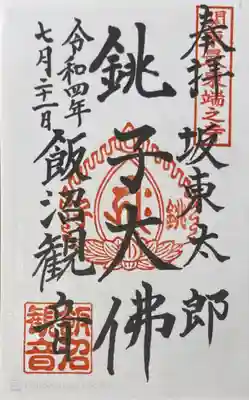 奉拝
坂東太郎
銚子大佛
飯沼観音
令和四年
七月二十一日
飯沼
観音